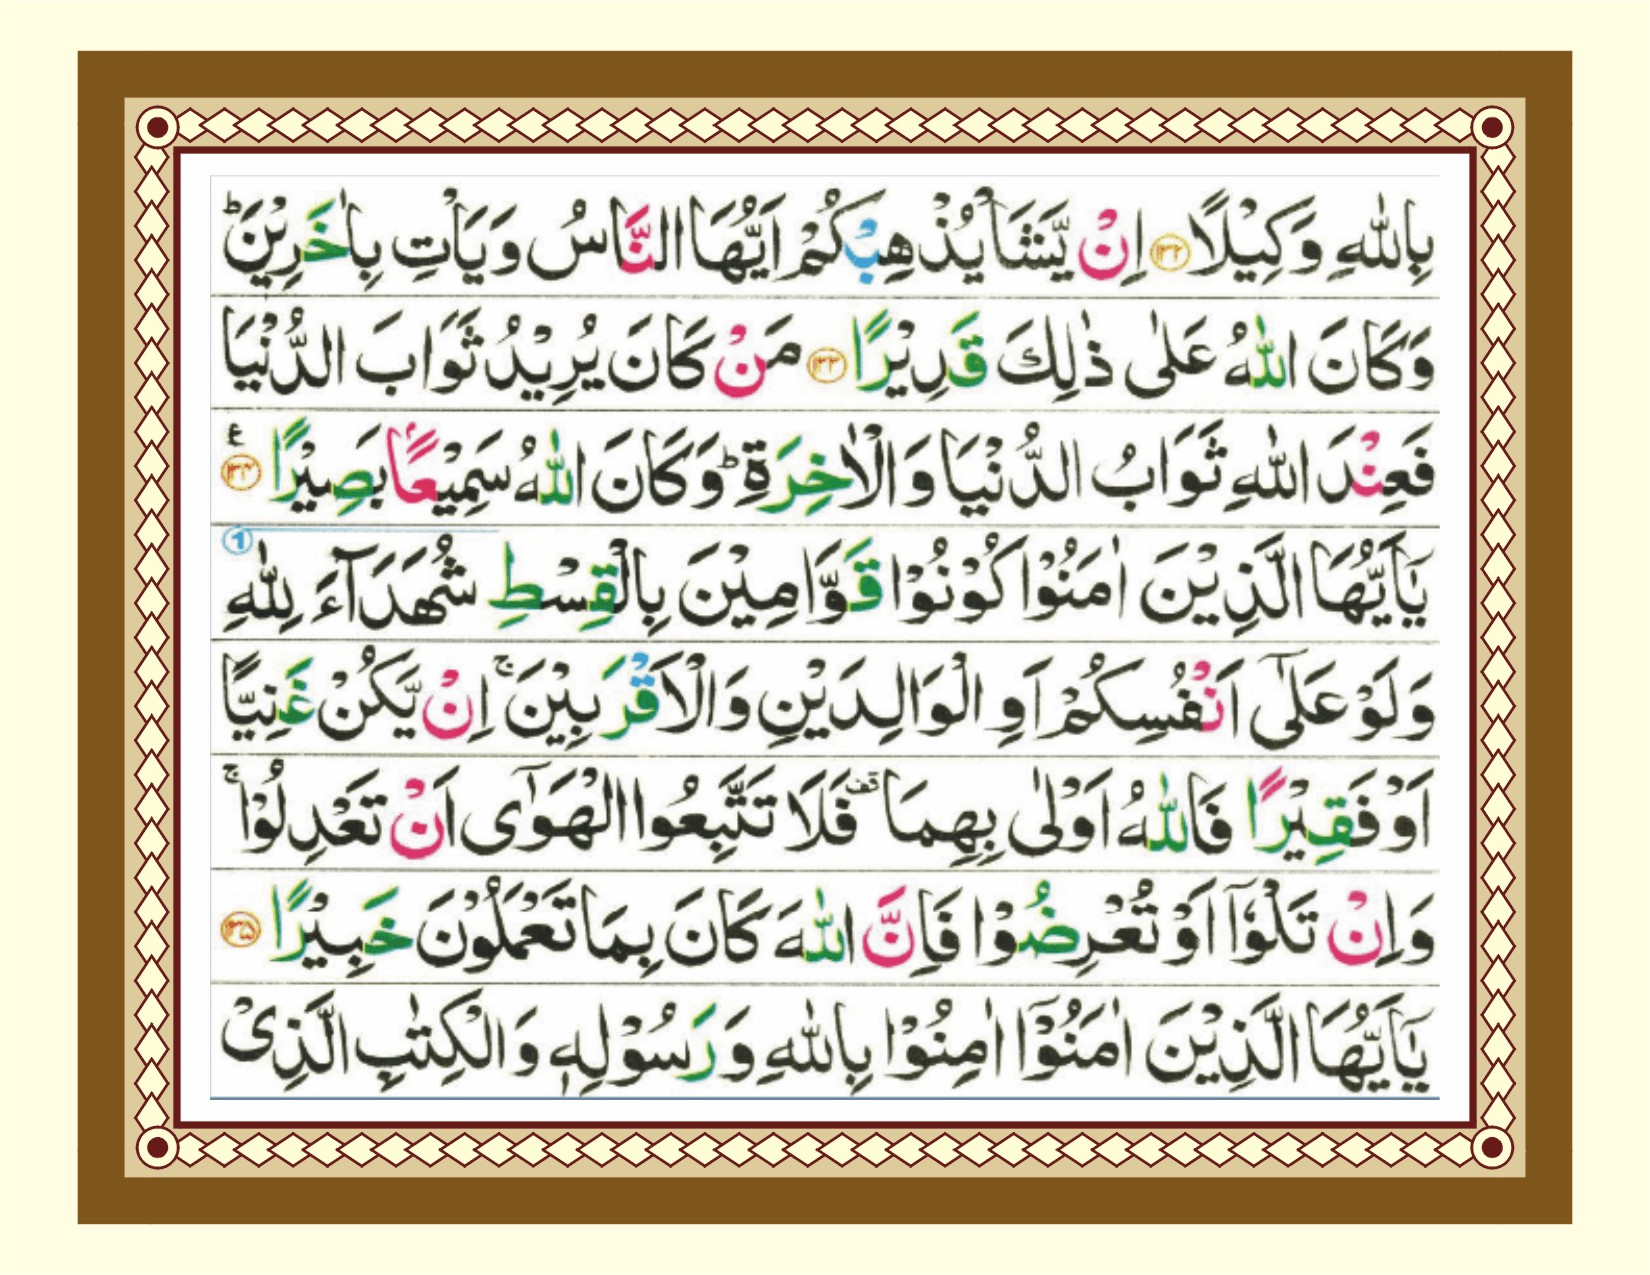 بِاللّٰهِ وَكِيْلًا ﴿۱۳۲﴾ اِنْ يَّشَاْ يُذْهِبْكُمْ اَيُّهَا النَّاسُ وَيَاْتِ بِاٰخَرِيْنَ ؕ
وَكَانَ اللّٰهُ عَلٰى ذٰلِكَ قَدِيْرًا ﴿۱۳۳﴾ مَنْ كَانَ يُرِيْدُ ثَوَابَ الدُّنْيَا
فَعِنْدَ اللّٰهِ ثَوَابُ الدُّنْيَا وَالْاٰخِرَةِ ؕ وَكَانَ اللّٰهُ سَمِيْعًا بَصِيْرًا ﴿۱۳۴﴾ ع
يٰۤاَيُّهَا الَّذِيْنَ اٰمَنُوْا كُوْنُوْا قَوَّامِيْنَ بِالْقِسْطِ شُهَدَآءَ لِلّٰهِ
وَلَوْ عَلٰۤى اَنْفُسِكُمْ اَوِ الْوَالِدَيْنِ وَالْاَقْرَبِيْنَ ۚ اِنْ يَّكُنْ غَنِيًّا
اَوْ فَقِيْرًا فَاللّٰهُ اَوْلٰى بِهِمَا قف فَلَا تَتَّبِعُوا الْهَوٰۤى اَنْ تَعْدِلُوْا ۚ
وَاِنْ تَلْوٗۤا اَوْ تُعْرِضُوْا فَاِنَّ اللّٰهَ كَانَ بِمَا تَعْمَلُوْنَ خَبِيْرًا ﴿۱۳۵﴾
يٰۤاَيُّهَا الَّذِيْنَ اٰمَنُوْۤا اٰمِنُوْا بِاللّٰهِ وَرَسُوْلِهٖ وَالْكِتٰبِ الَّذِىْ